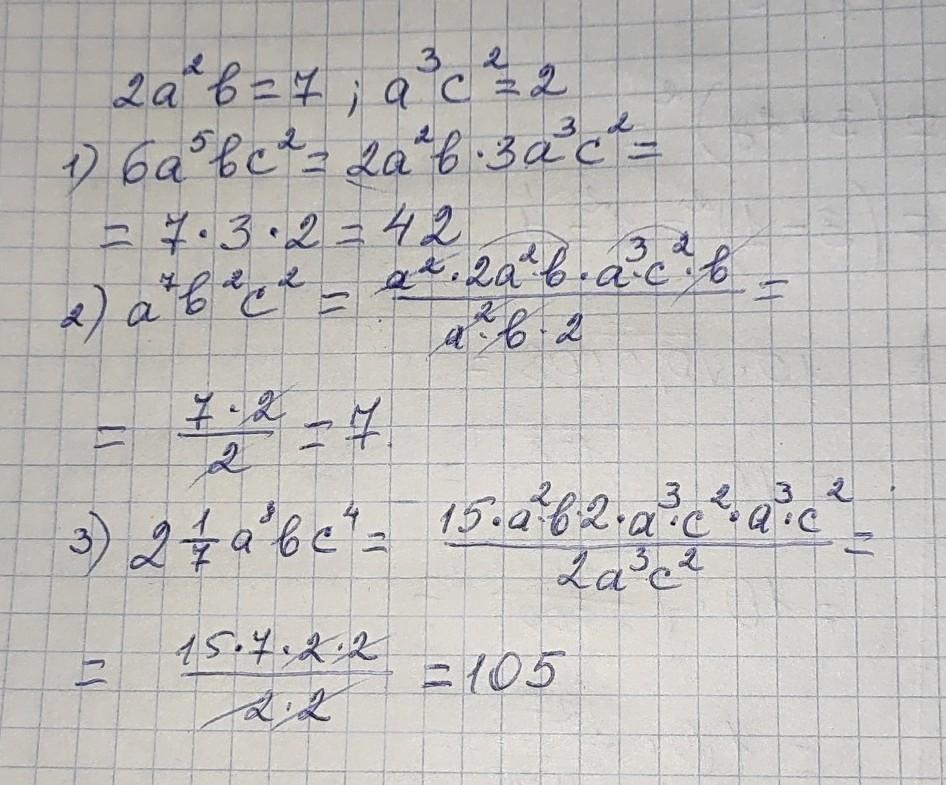 2a²b = 7 ; a³c² = 2
1) 6a⁵bc² = 2a²b · 3a³c² =
= 7 · 3 · 2 = 42
2) a⁷b²c² = (a² · 2a²·b · a³·c² · b) / (a²·b · 2) =
= (7 · 2) / 2 = 7.
3) 2 1/7 a⁸bc⁴ = (15·a²·b·2·a³·c²·a³·c²) / (2a³c²) =
= (15·7·2·2) / (2·2) = 105